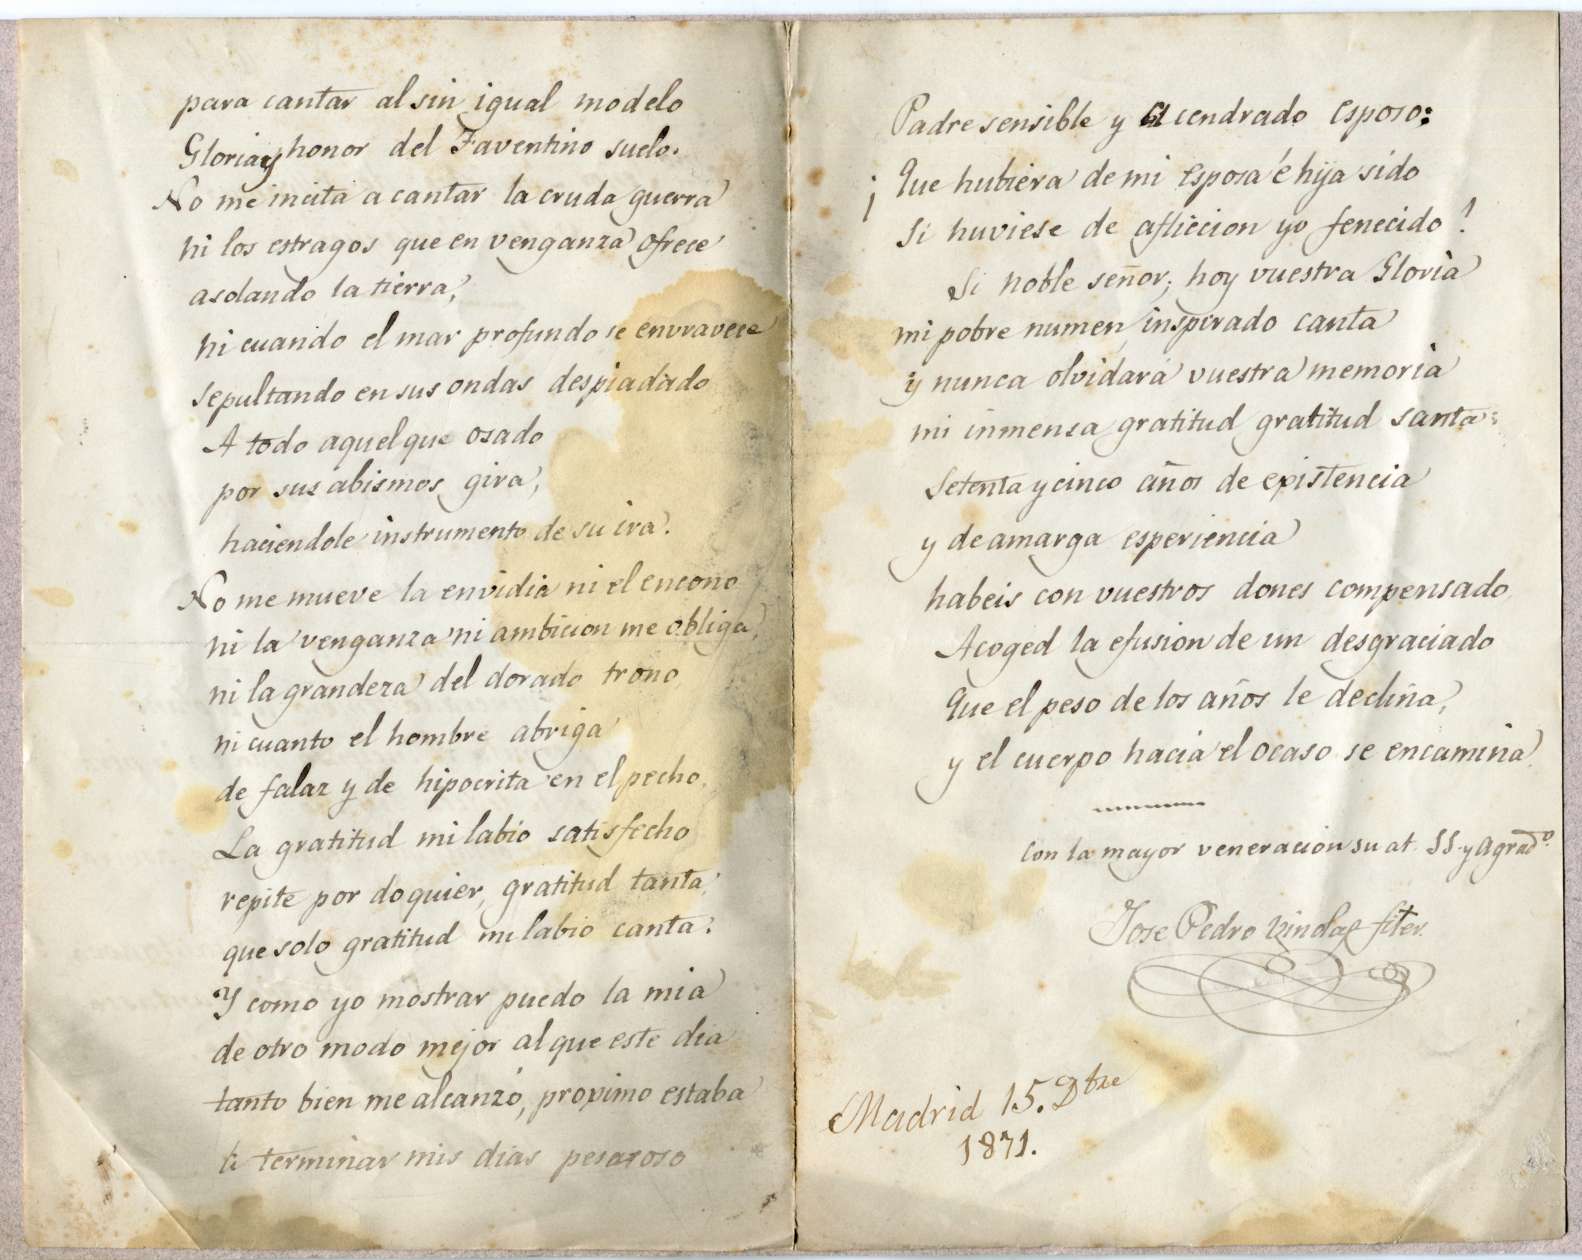 para cantar al sin igual modelo
Gloria y honor del Faventino suelo.
No me incita a cantar la cruda guerra
ni los estragos que en venganza ofrece
asolando la tierra,
ni cuando el mar profundo se envravece
sepultando en sus ondas despiadado
A todo aquel que osado
por sus abismos gira,
haciendole instrumento de su ira.
No me mueve la envidia ni el encono
ni la venganza ni ambicion me obliga,
ni la grandeza del dorado trono
ni cuanto el hombre abriga
de falaz y de hipocrita en el pecho.
La gratitud mi labio satisfecho
repite por doquier, gratitud tanta,
que solo gratitud mi labio canta:
Y como yo mostrar puedo la mia
de otro modo mejor al que este dia
tanto bien me alcanzó, proximo estaba
a terminar mis dias pesaroso
Padre sensible y acendrado esposo:
¡Que hubiera de mi esposa é hija sido
si huviese de afliccion yo fenecido!
Si noble señor, hoy vuestra Gloria
mi pobre numen inspirado canta
y nunca olvidará vuestra memoria
mi inmensa gratitud gratitud santa:
Setenta y cinco años de existencia
y de amarga esperiencia
habeis con vuestros dones compensado
Acoged la efusion de un desgraciado
Que el peso de los años le declina,
y el cuerpo hacia el ocaso se encamina
Con la mayor veneracion su at. SS. y Agradº.
Jose Pedro
Madrid 15. Dbre
1871.